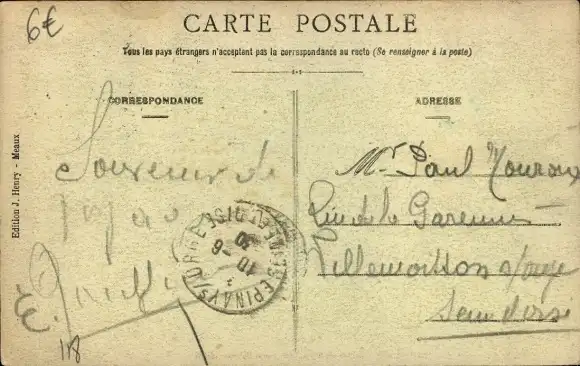 6€
CARTE POSTALE
Tous les pays étrangers n'acceptent pas la correspondance au recto (Se renseigner à la poste)
CORRESPONDANCE
ADRESSE
Edition J. Henry - Meaux
Souvenir de
Mr Paul
Rue de la Garenne
Villemoisson s/Orge
Seine et Oise
EPINAY S/ORGE SEINE ET OISE
10 -6
30